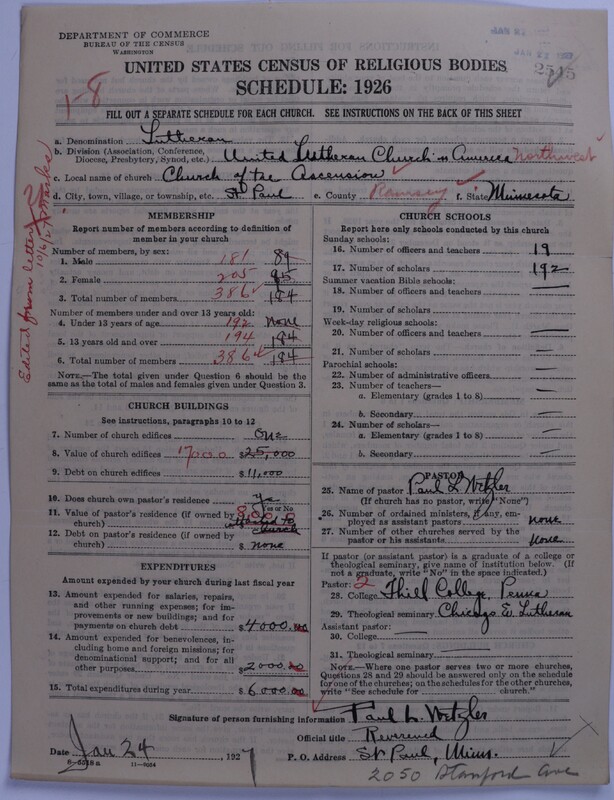 DEPARTMENT OF COMMERCE
BUREAU OF THE CENSUS
WASHINGTON
2515
UNITED STATES CENSUS OF RELIGIOUS BODIES
SCHEDULE: 1926
1-8
FILL OUT A SEPARATE SCHEDULE FOR EACH CHURCH. SEE INSTRUCTIONS ON THE BACK OF THIS SHEET
a. Denomination Lutheran
b. Division (Association, Conference, Diocese, Presbytery, Synod, etc.) United Lutheran Church in America Northwest
c. Local name of church Church of the Ascension
d. City, town, village, or township, etc. St Paul e. County Ramsey f. State Minnesota
Edited from letter 10/6/27
MEMBERSHIP
Report number of members according to definition of
member in your church
Number of members, by sex:
1. Male 181 89
2. Female 205 95
3. Total number of members 386 184
Number of members under and over 13 years old:
4. Under 13 years of age 192 none
5. 13 years old and over 194 194
6. Total number of members 386 194
NOTE.—The total given under Question 6 should be
the same as the total of males and females given under Question 3.
CHURCH BUILDINGS
See instructions, paragraphs 10 to 12
7. Number of church edifices One
8. Value of church edifices 17000 $25,000
9. Debt on church edifices $11,000
10. Does church own pastor's residence? yes
Yes or No
11. Value of pastor's residence (if owned by
church) 8000 attached to church
12. Debt on pastor's residence (if owned by
church) $ none
EXPENDITURES
Amount expended by your church during last fiscal year
13. Amount expended for salaries, repairs,
and other running expenses; for im-
provements or new buildings; and for
payments on church debt $4000.00
14. Amount expended for benevolences,
including home and foreign missions; for
denominational support; and for all
other purposes $2000.00
15. Total expenditures during year $6000.00
CHURCH SCHOOLS
Report here only schools conducted by this church
Sunday schools:
16. Number of officers and teachers 19
17. Number of scholars 192
Summer vacation Bible schools:
18. Number of officers and teachers —
19. Number of scholars —
Week-day religious schools:
20. Number of officers and teachers —
21. Number of scholars —
Parochial schools:
22. Number of administrative officers —
23. Number of teachers—
a. Elementary (grades 1 to 8) —
b. Secondary —
24. Number of scholars—
a. Elementary (grades 1 to 8) —
b. Secondary —
PASTOR
25. Name of pastor Paul L Wetzler
(If church has no pastor, write "None")
26. Number of ordained ministers, if any, em-
ployed as assistant pastors none
27. Number of other churches served by the
pastor or his assistants None
If pastor (or assistant pastor) is a graduate of a college or
theological seminary, give name of institution below. (If
not a graduate, write "No" in the space indicated.)
Pastor: 2
28. College Thiel College, Penna
29. Theological seminary Chicago E. Lutheran
Assistant pastor:
30. College —
31. Theological seminary —
NOTE.—Where one pastor serves two or more churches,
Questions 28 and 29 should be answered only on the schedule
for one of the churches; on the schedules for the other churches,
write "See schedule for ........ church."
Signature of person furnishing information Paul L. Wetzler
Official title Reverend
Date Jan 24, 1927 P. O. Address St Paul, Minn.
2050 Stanford Ave
8-5518a 11-9054